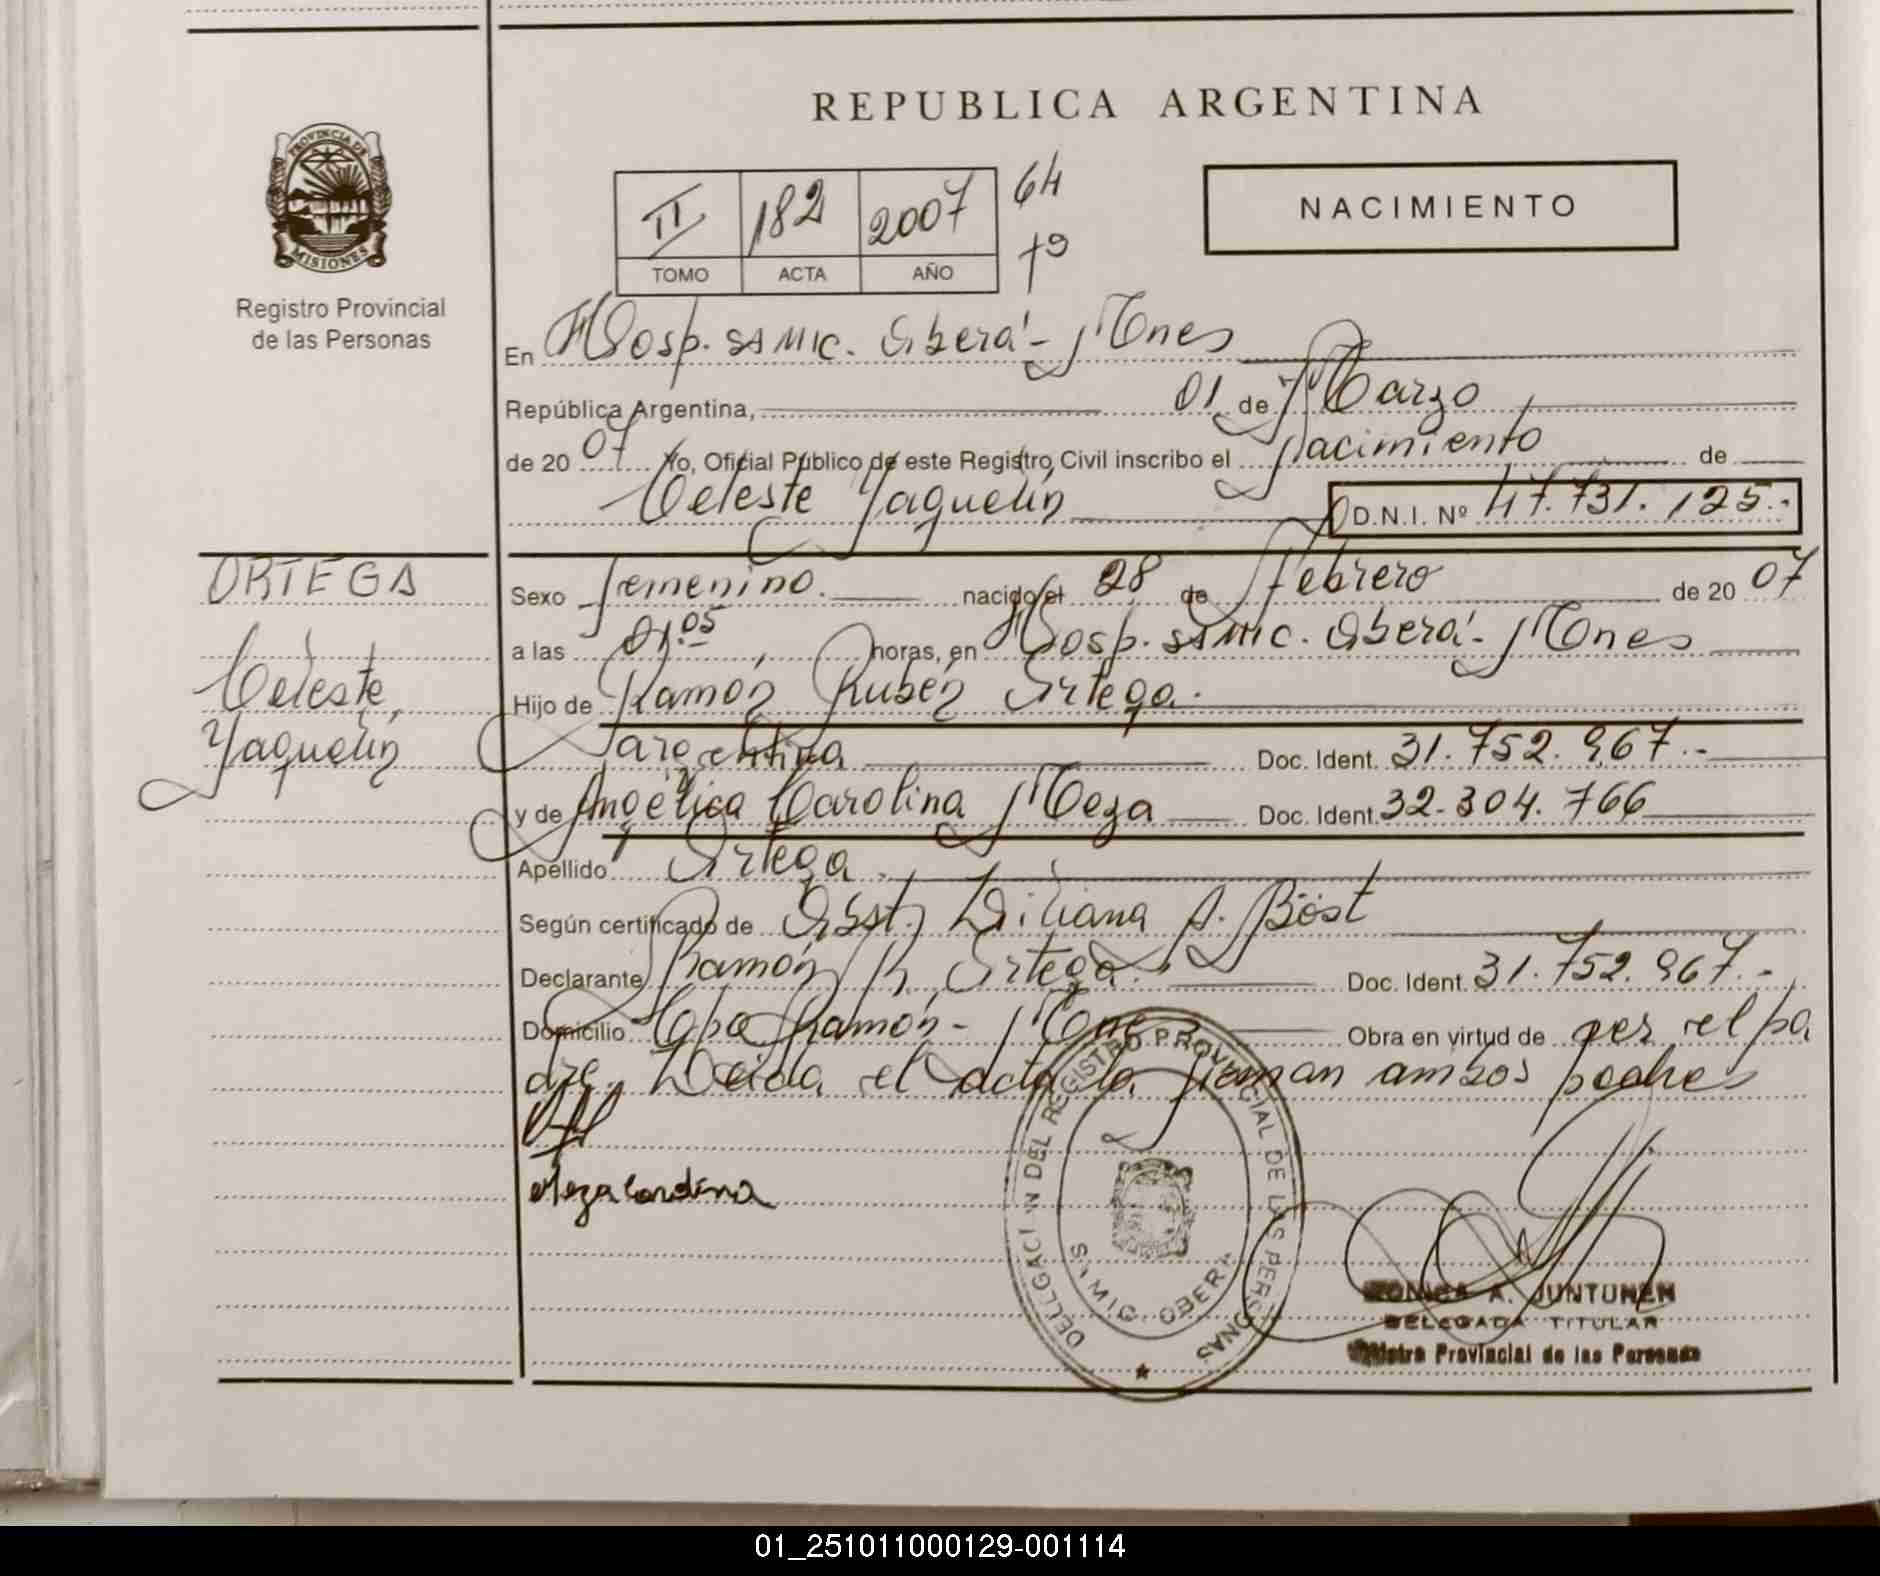 REPUBLICA ARGENTINA
PROVINCIA DE
MISIONES
Registro Provincial
de las Personas
II 182 2007
TOMO ACTA AÑO
64
79
NACIMIENTO
En Hosp. SAMIC. Oberá - Mnes
República Argentina, 01 de Marzo
de 2007 Yo, Oficial Público de este Registro Civil inscribo el Nacimiento de
Celeste Yaquelin D.N.I. Nº 47.731.125.-
ORTEGA
Celeste
Yaquelin
Sexo femenino. nacido el 28 de febrero de 2007
a las 01.05, horas, en Hosp. SAMIC. Oberá - Mnes
Hijo de Ramón Rubén Ortega.
argentina Doc. Ident. 31.752.967.-
y de Angélica Carolina Meza Doc. Ident. 32.304.766
Apellido Ortega.
Según certificado de Obst. Liliana A. Böst
Declarante Ramón R. Ortega. Doc. Ident. 31.752.967.-
Domicilio Cpo Ramón - Mnes Obra en virtud de ser el pa
dre. Leida el acta la firman ambos padres
Meza Carolina
DELEGACI N DEL REGISTRO PROVINCIAL DE LAS PERSONAS
OBERA
A. JUNTUNEN
DELEGADA TITULAR
Provincial de las Personas
01_251011000129-001114